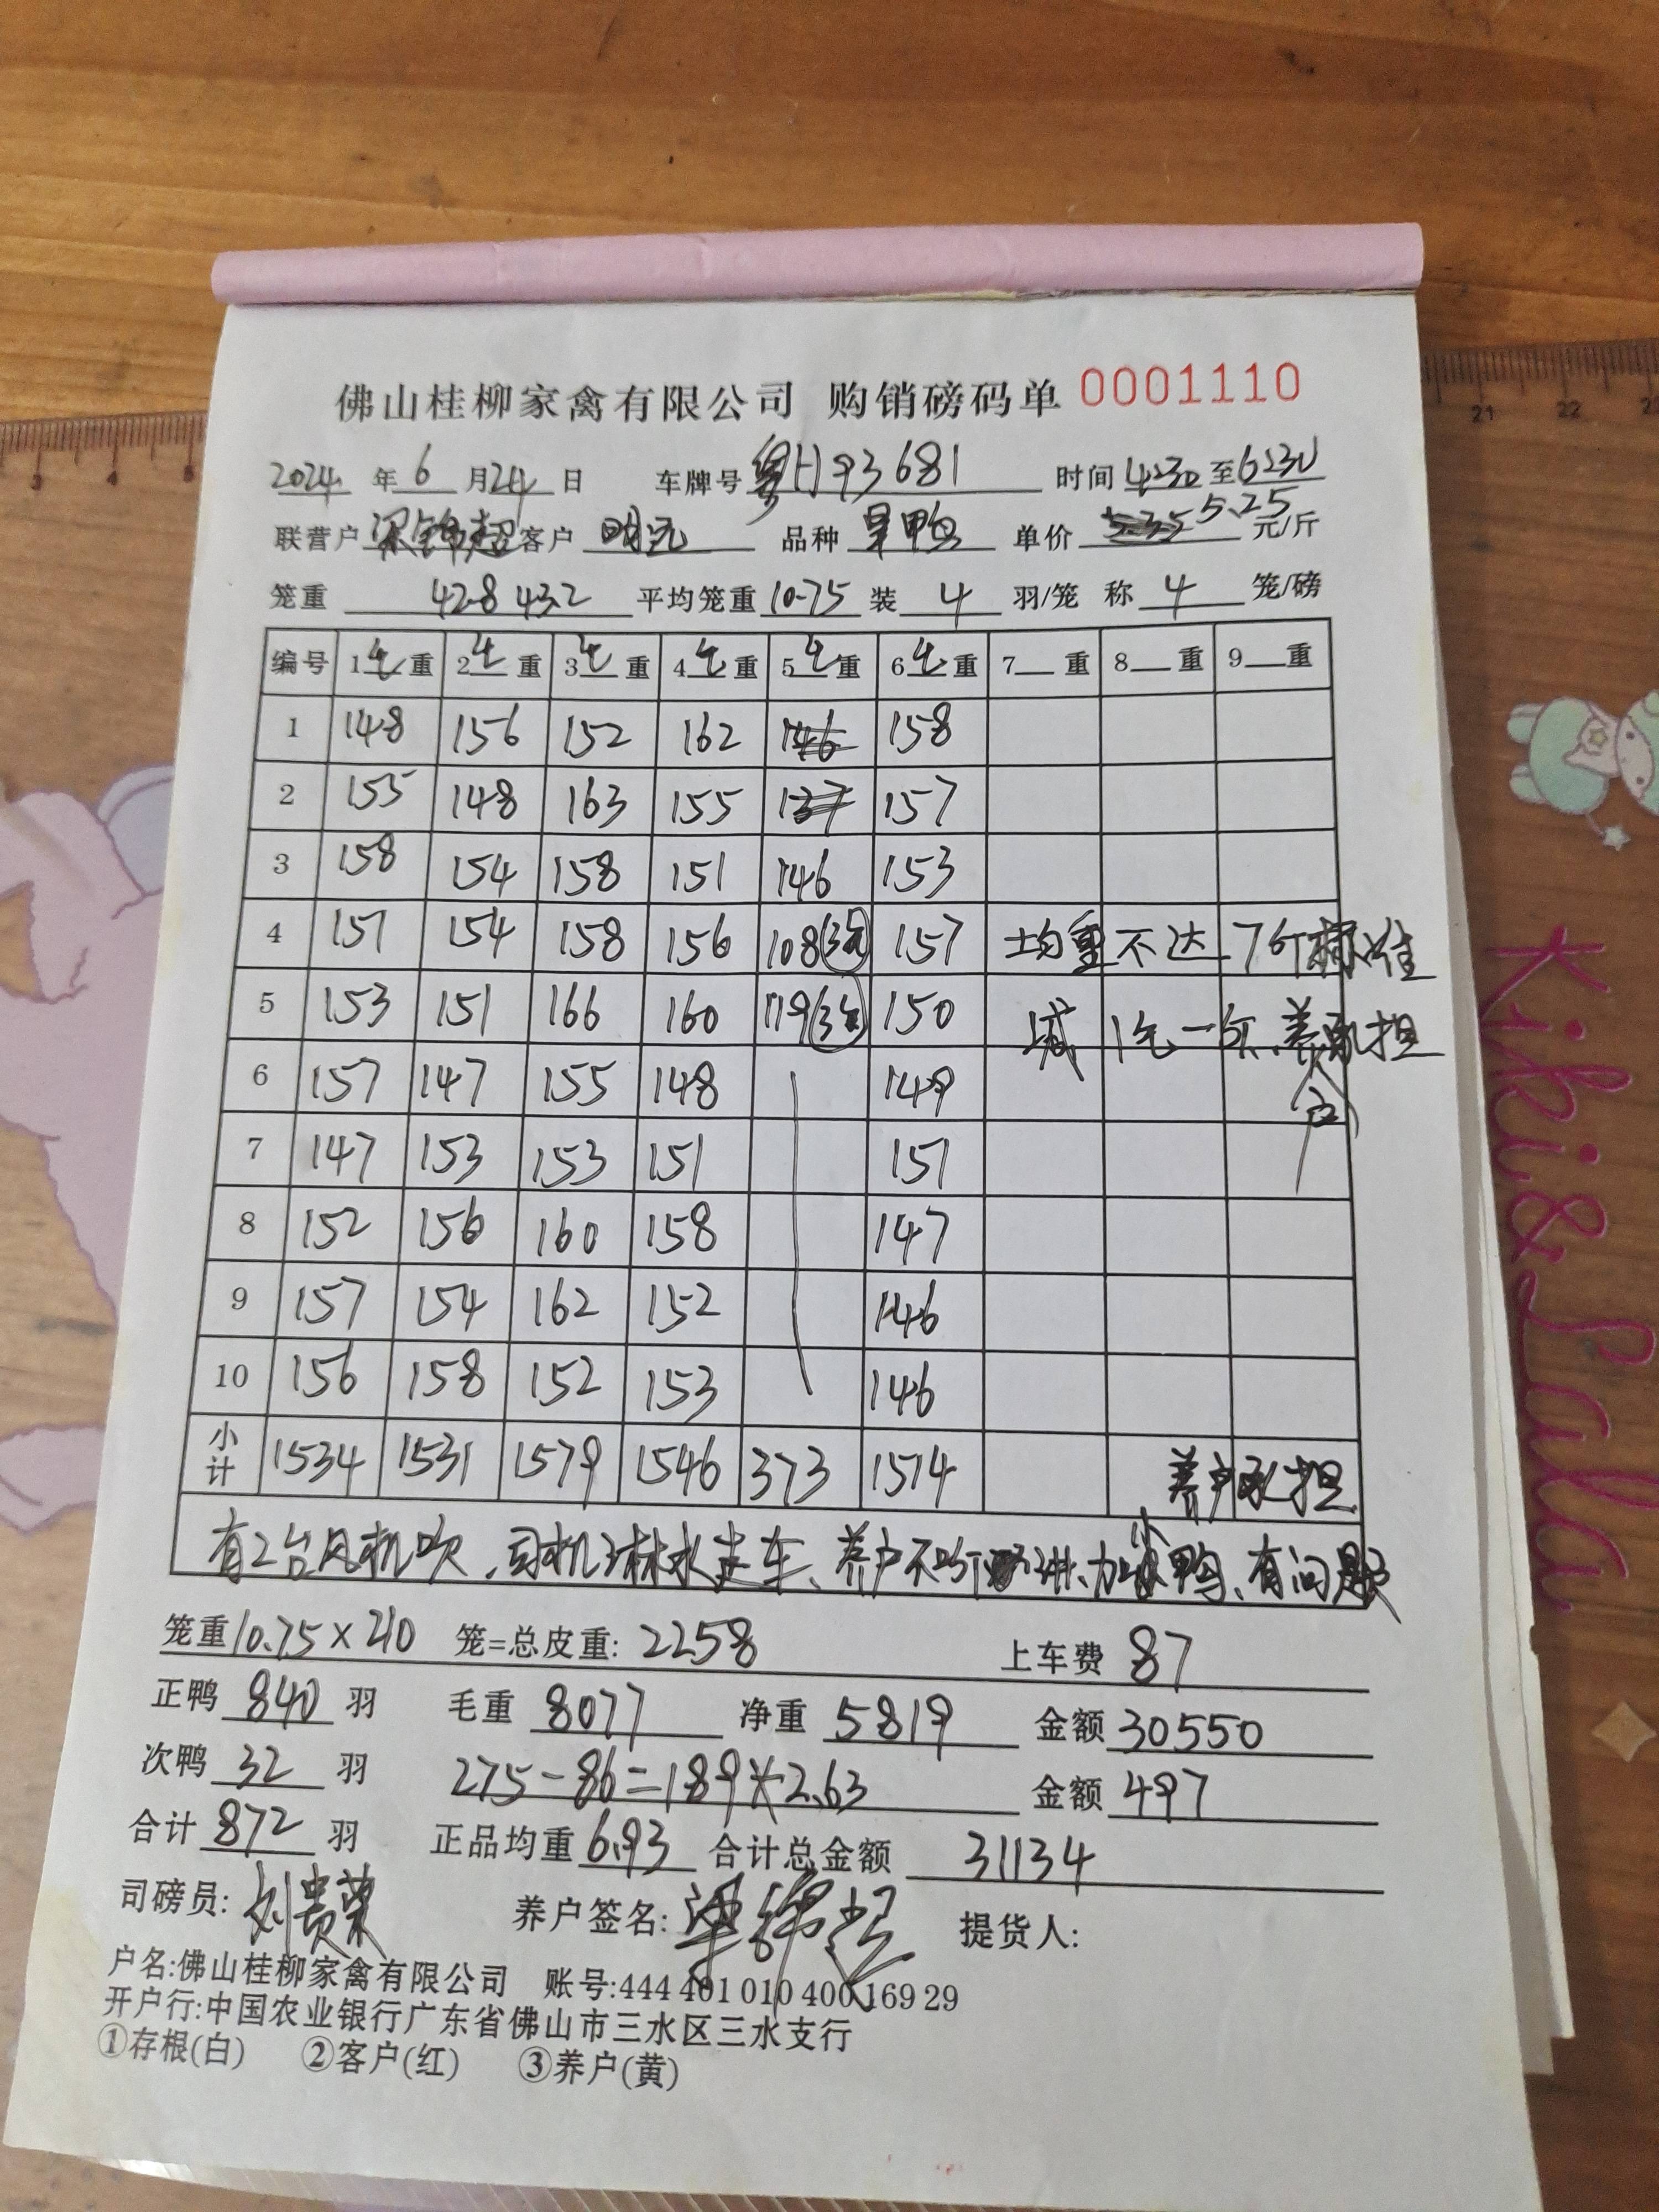 佛山桂柳家禽有限公司 购销磅码单 0001110
2024 年 6 月 24 日 车牌号 粤H93681 时间 4:30 至 6:30
联营户 梁锦超 客户 明记 品种 旱鸭 单价 5.25 元/斤
笼重 428 432 平均笼重 10.75 装 4 羽/笼 称 4 笼/磅
编号 1毛重 2毛重 3毛重 4毛重 5毛重 6毛重 7 重 8 重 9 重
1 148 156 152 162 146 158
2 155 148 163 155 137 157
3 158 154 158 151 146 153
4 151 154 158 156 108(3笼) 157 均重不达7斤标准
5 153 151 166 160 119(3笼) 150 减1毛一斤、养户承担
6 157 147 155 148 149
7 147 153 153 151 151
8 152 156 160 158 147
9 157 154 162 152 146
10 156 158 152 153 146
小计 1534 1531 1579 1546 373 1514 养户承担
有2台风机吹、司机淋水走车、养户不听讲、有问题
笼重 10.75×210 笼=总皮重: 2258 上车费 87
正鸭 840 羽 毛重 8077 净重 5819 金额 30550
次鸭 32 羽 275-86=189×2.63 金额 497
合计 872 羽 正品均重 6.93 合计总金额 31134
司磅员: 刘贵荣 养户签名: 梁锦超 提货人:
户名:佛山桂柳家禽有限公司 账号:444 401 010 400 169 29
开户行:中国农业银行广东省佛山市三水区三水支行
①存根(白) ②客户(红) ③养户(黄)
3 4 5
21 22
Kiki&Lala